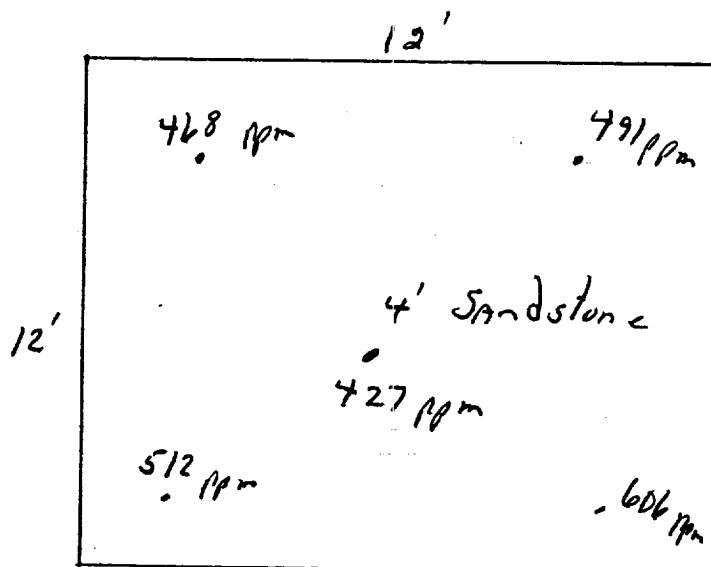 12'
468 ppm
491 ppm
4' Sandstone
12'
427 ppm
512 ppm
606 ppm